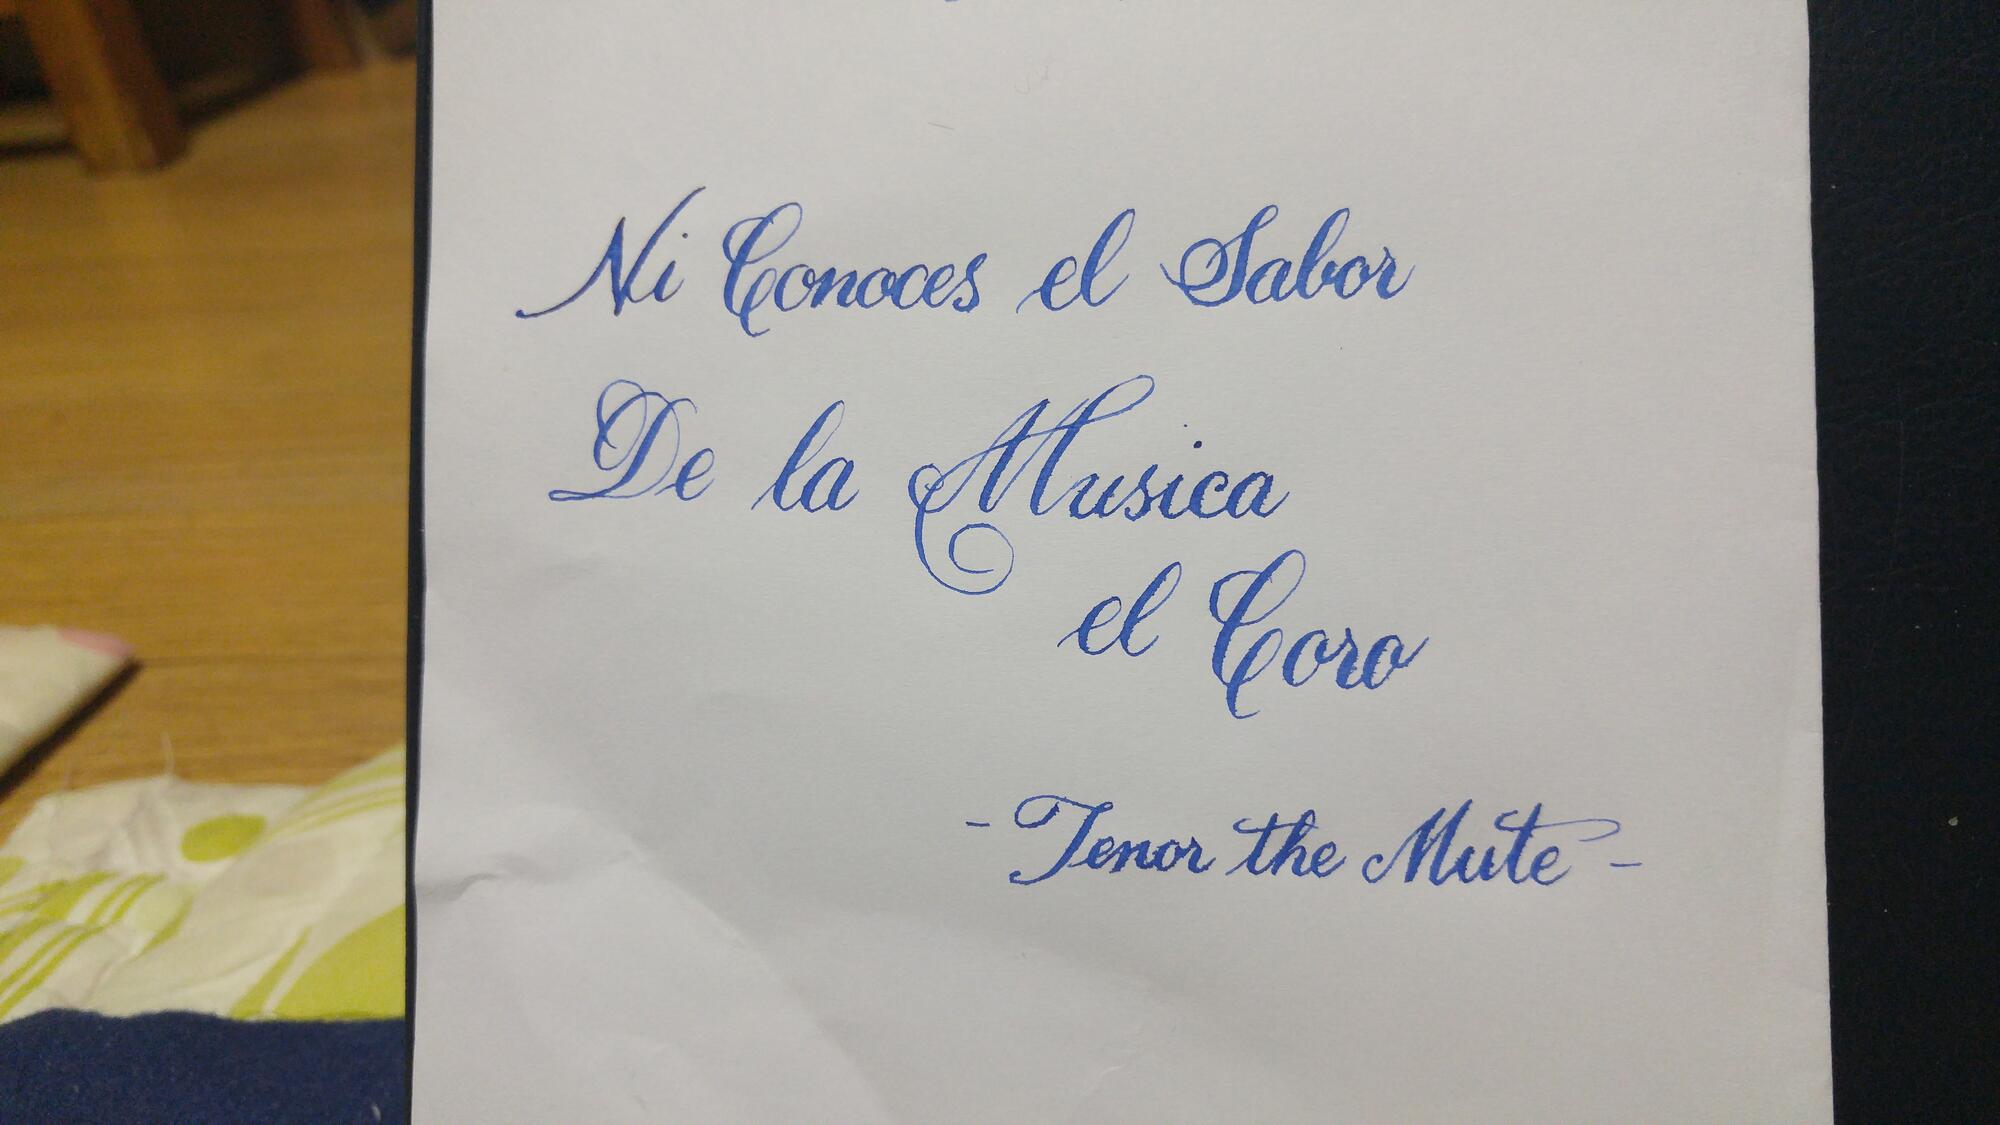 Ni Conoces el Sabor
De la Musica
el Coro
- Tenor the Mute -